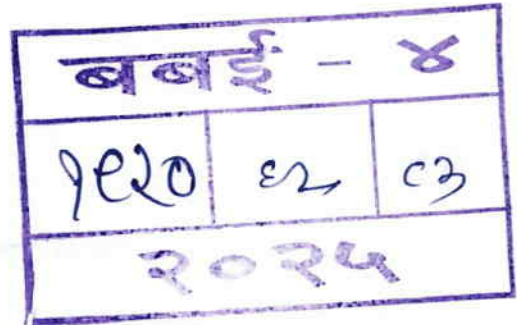 बबई - ४
१९२० ६२ ८३
२०२५